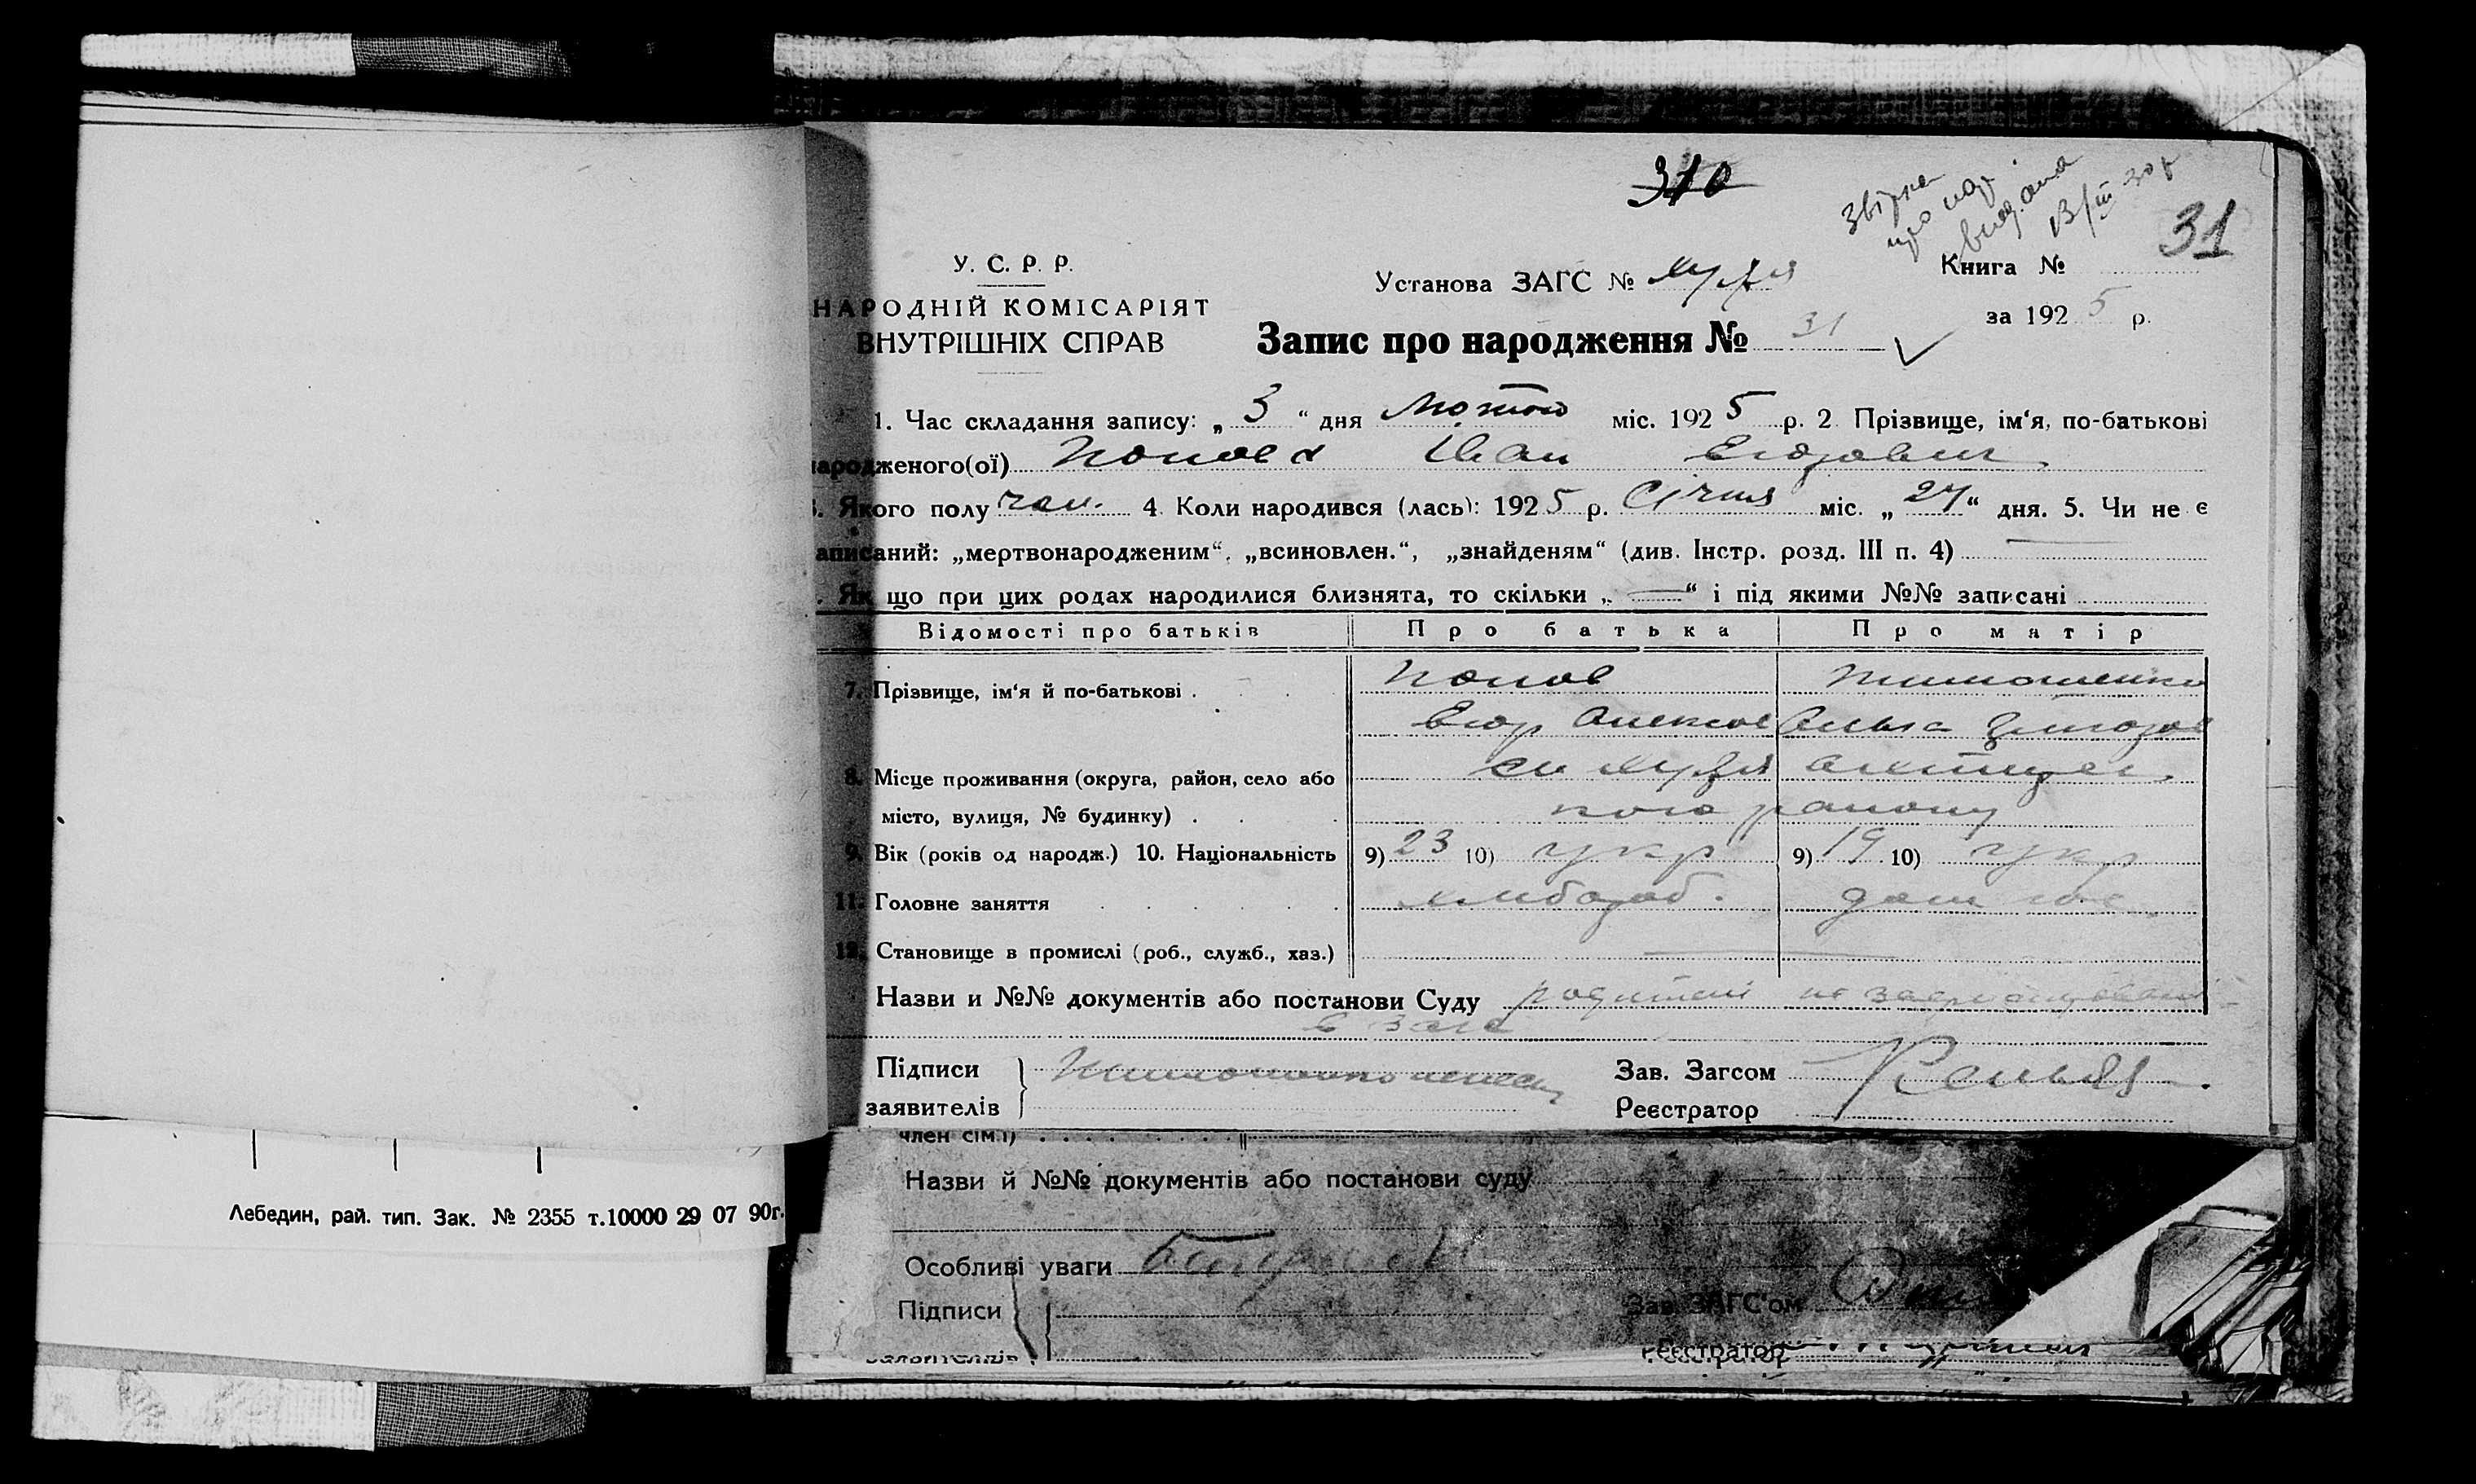 310
Звірка
про нар
видана
13/III 30 р
31
У. С. Р. Р.
НАРОДНІЙ КОМІСАРІЯТ
ВНУТРІШНІХ СПРАВ
Установа ЗАГС №
Книга №
за 1925 р.
Запис про народження № 31
1. Час складання запису: „ 3 “ дня Лютого міс. 1925 р. 2. Прізвище, ім‘я, по-батькові
народженого(ої) Попов Іван Егорович
3. Якого полу чол. 4. Коли народився (лась): 1925 р. Січня міс. „ 27 “ дня. 5. Чи не є
записаний: „мертвонародженим“, „всиновлен.“, „знайденям“ (див. Інстр. розд. III п. 4)
. Як що при цих родах народилися близнята, то скільки „ — “ і під якими №№ записані
Відомості про батьків Про батька Про матір
7. Прізвище, ім‘я й по-батькові . Попов Тимошенко
Егор Алексее Ольга
8. Місце проживання (округа, район, село або
місто, вулиця, № будинку) . кого району
9. Вік (років од народж.) 10. Національність 9) 23 10) укр 9) 19 10) укр
11. Головне заняття хлібороб. дом гос.
12. Становище в промислі (роб., служб., хаз.)
Назви и №№ документів або постанови Суду родителі не зареєстровані
в загсе
Підписи Тимошенко
заявителів
Зав. Загсом
Реєстратор
член сім‘ї)
Назви й №№ документів або постанови суду
Особливі уваги
Підписи
Зав. ЗАГС‘ом
Реєстратор
Лебедин, рай. тип. Зак. № 2355 т.10000 29 07 90г.